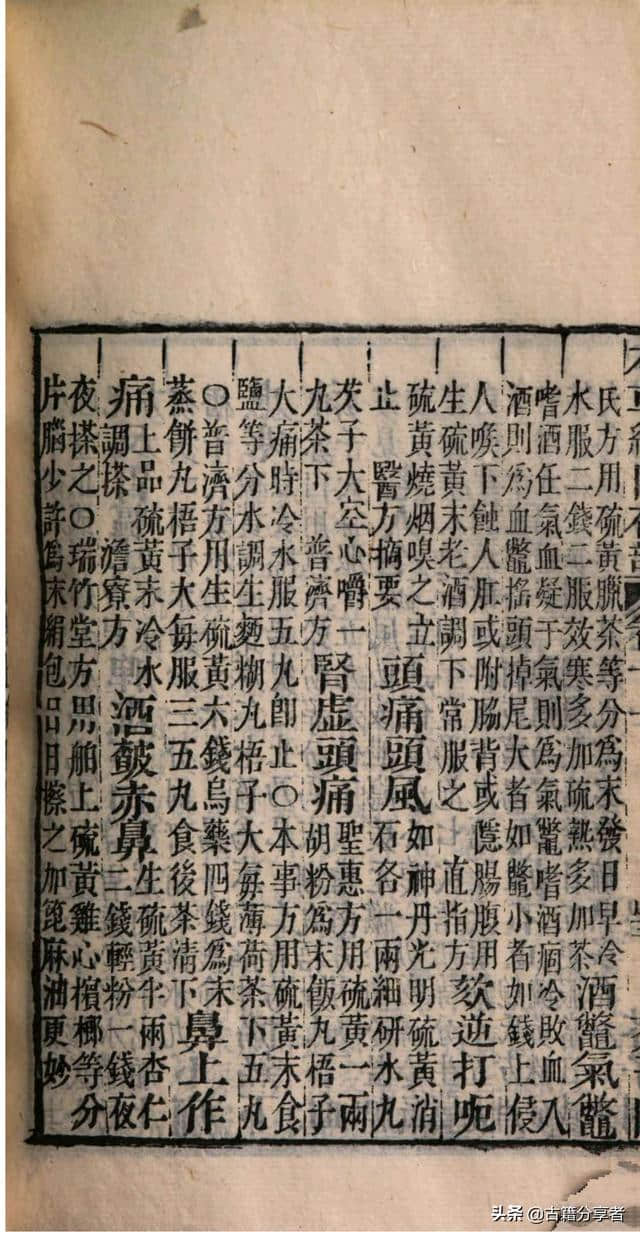 氏方用硫黃臘茶等分為末發日早冷
水服二錢二服效寒多加硫熱多加茶
酒鼈氣鼈
嗜酒任氣血凝于氣則為氣鼈嗜酒痼冷敗血入
酒則為血鼈搖頭掉尾大者如鼈小者如錢上侵
人喉下蝕人肛或附脇背或隱腸腹用
生硫黃末老酒調下常服之 直指方
欬逆打呃
硫黃燒烟嗅之立
止 醫方摘要
頭痛頭風
如神丹光明硫黃消
石各一兩細研水丸
芡子大空心嚼一
丸茶下 普濟方
腎虛頭痛
聖惠方用硫黃一兩
胡粉為末飯丸梧子
大痛時冷水服五丸卽止〇本事方用硫黃末食
鹽等分水調生麪糊丸梧子大每薄荷茶下五丸
〇普濟方用生硫黃六錢烏藥四錢為末
蒸餅丸梧子大每服三五丸食後茶清下
鼻上作
痛
上品硫黃末冷水
調搽 澹寮方
酒皶赤鼻
生硫黃半兩杏仁
二錢輕粉一錢夜
夜搽之〇瑞竹堂方用舶上硫黃雞心檳榔等分
片腦少許為末絹包日日擦之加蓖麻油更妙
头条 @古籍分享者